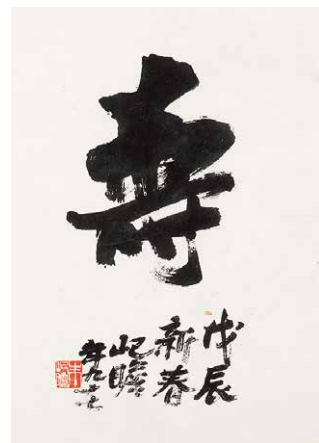 寿
戊辰
新春
屺瞻
年九十七